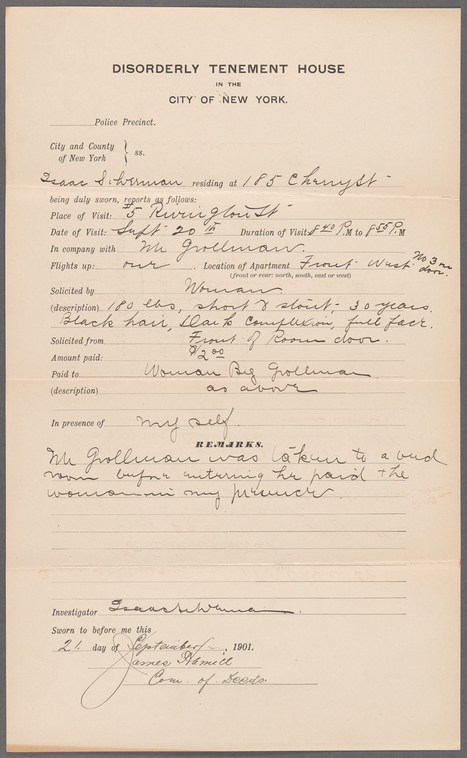 DISORDERLY TENEMENT HOUSE
IN THE
CITY OF NEW YORK.
Police Precinct.
City and County
of New York } ss.
Isaac Silverman residing at 185 Cherry St
being duly sworn, reports as follows:
Place of Visit: #5 Rivington St
Date of Visit: Sept 20th Duration of Visit: 8 40 P. M to 8 55 P. M
In company with Mr Grollman.
Flights up: one. Location of Apartment Front West No 3
door.
(front or rear: north, south, east or west)
Solicited by Woman
(description) 180 lbs, short & stout, 30 years.
Black hair, Dark Complexion, full face.
Solicited from Front of Room door.
Amount paid: $2.00
Paid to Woman By Grollman
(description) as above
In presence of my self.
REMARKS.
Mr Grollman was taken to a bed
room before entering he paid the
woman in my presence.
Investigator Isaac Silverman.
Sworn to before me this
21 day of September, 1901.
James Hamill
Com. of Deeds